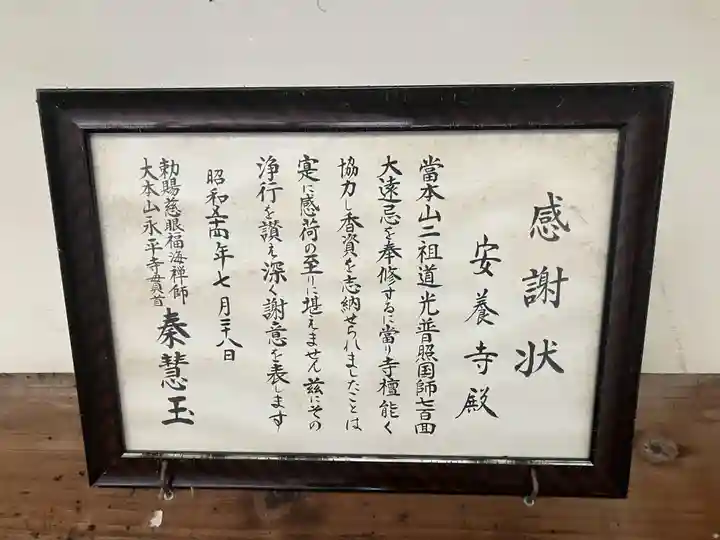 感謝状
安養寺殿
當本山二祖道光普照国師七百回
大遠忌を奉修するに當り寺檀能く
協力し香資を志納せられましたことは
寔に感荷の至りに堪えません茲にその
浄行を讃え深く謝意を表します
昭和五十四年七月二十八日
勅賜慈眼福海禅師
大本山永平寺貫首 秦慧玉